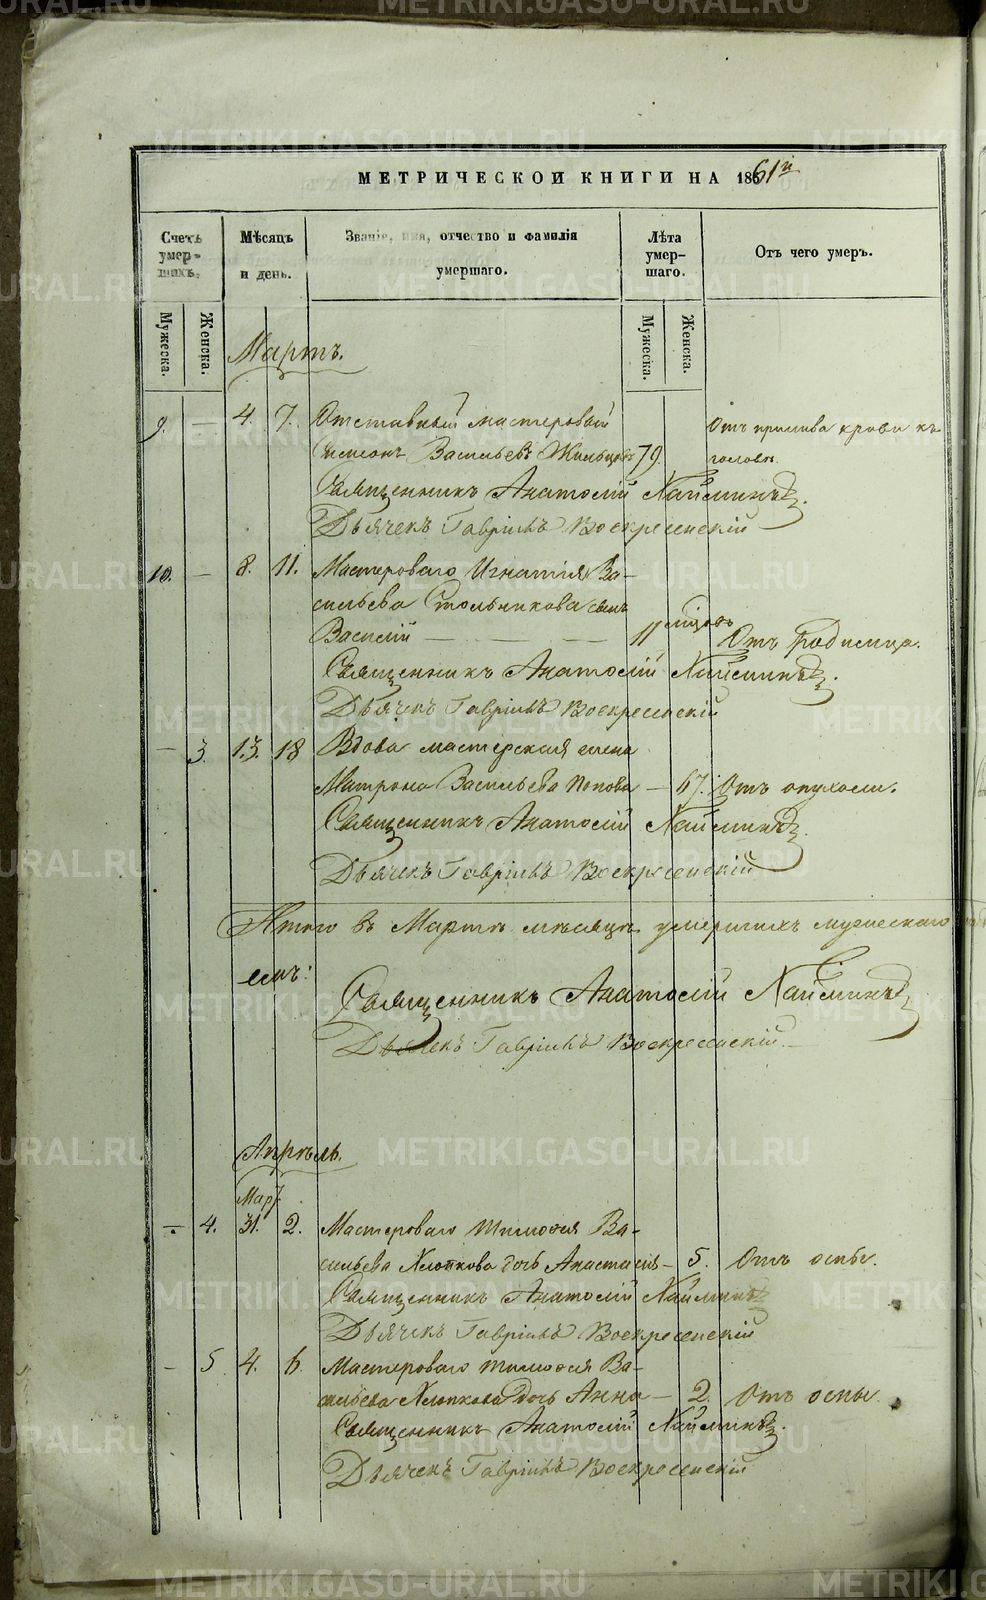 МЕТРИЧЕСКОЙ КНИГИ НА 1861й
Счетъ умершихъ.
Мѣсяцъ и день.
Званіе, имя, отчество и фамилія умершаго.
Лѣта умершаго.
Отъ чего умеръ.
Мужеска.
Женска.
Мужеска.
Женска.
Мартъ.
9. — 4. 7. Отставный мастеровый Отъ прилива крови къ
Симеонъ Васильевъ Жильцовъ 79. головѣ.
Священникъ Анатолій
Дьячекъ Гавріилъ Воскресенскій
10. — 8. 11. Мастероваго Игнатія Ва-
сильева Стольникова сынъ
Василій — — — 11 мѣсяцовъ Отъ родимца.
Священникъ Анатолій
Дьячекъ Гавріилъ Воскресенскій
— 3. 13. 18 Вдова мастерская жена
Матрона Васильева Попова — 67. Отъ опухоли.
Священникъ Анатолій
Дьячекъ Гавріилъ Воскресенскій
Итого въ Мартѣ мѣсяцѣ умершихъ мужескаго
Священникъ Анатолій
Дьячекъ Гавріилъ Воскресенскій
Апрѣль.
Мар.
— 4. 31. 2. Мастероваго Тимофея Ва-
сильева Хлопкова дочь Анастасія — 5. Отъ оспы.
Священникъ Анатолій
Дьячекъ Гавріилъ Воскресенскій
— 5 4. 6 Мастероваго Тимофея Ва-
сильева Хлопкова дочь Анна — 2. Отъ оспы.
Священникъ Анатолій
Дьячекъ Гавріилъ Воскресенскій
METRIKI.GASO-URAL.RU